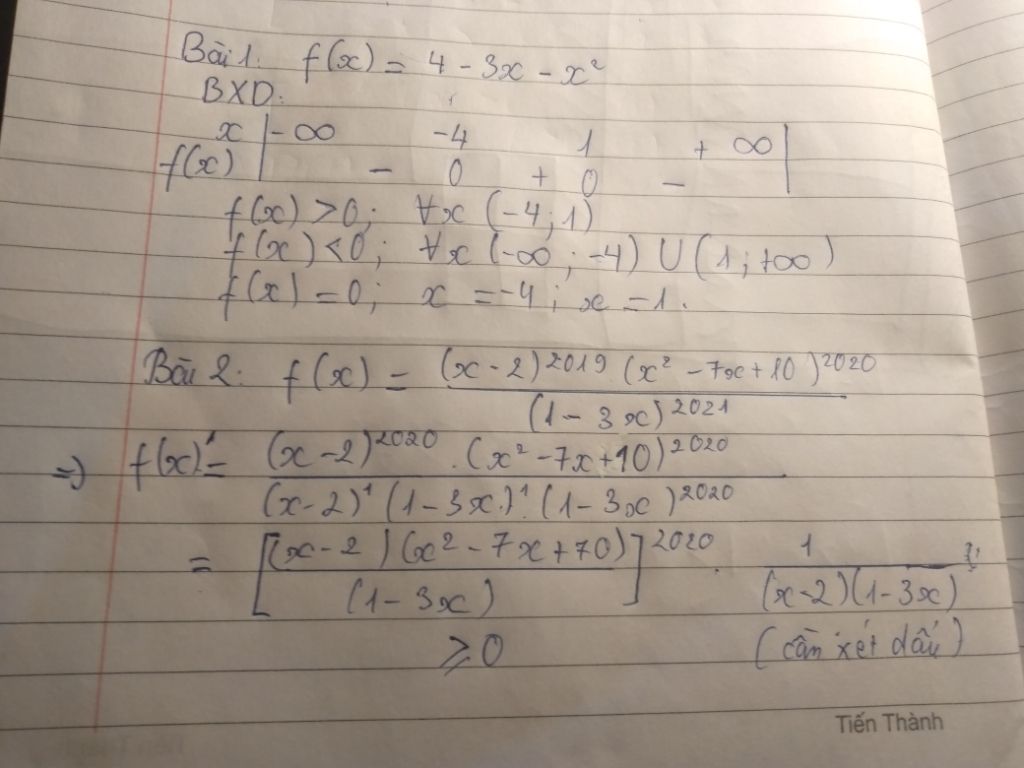 Bài 1: f(x) = 4 - 3x - x²
BXD:
x | -∞ -4 1 + ∞ |
f(x) | - 0 + 0 - |
f(x) > 0; ∀x (-4; 1)
f(x) < 0; ∀x (-∞; -4) ∪ (1; +∞)
f(x) = 0; x = -4; x = 1.
Bài 2: f(x) = (x - 2)^2019 . (x² - 7x + 10)^2020 / (1 - 3x)^2021
=> f(x)' = (x - 2)^2020 . (x² - 7x + 10)^2020 / (x - 2)^1 (1 - 3x)^1 . (1 - 3x)^2020
= [(x - 2) (x² - 7x + 70) / (1 - 3x)]^2020 . 1 / (x - 2)(1 - 3x)
⩾ 0 (cần xét dấu)
Tiến Thành